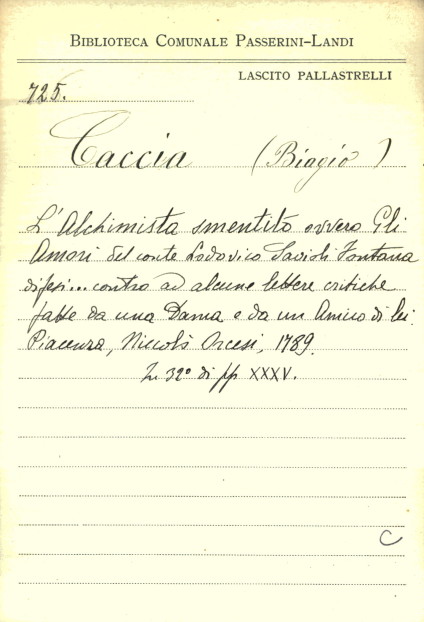 BIBLIOTECA COMUNALE PASSERINI-LANDI
LASCITO PALLASTRELLI
725.
Caccia (Biagio)
L'Alchimista smentito ovvero Gli
Amori del conte Lodovico Savioli Fontana
difesi... contro ad alcune lettere critiche
fatte da una Dama e da un Amico di lei.
Piacenza, Niccolò Orcesi, 1789.
In 32° di pp XXXV.
C